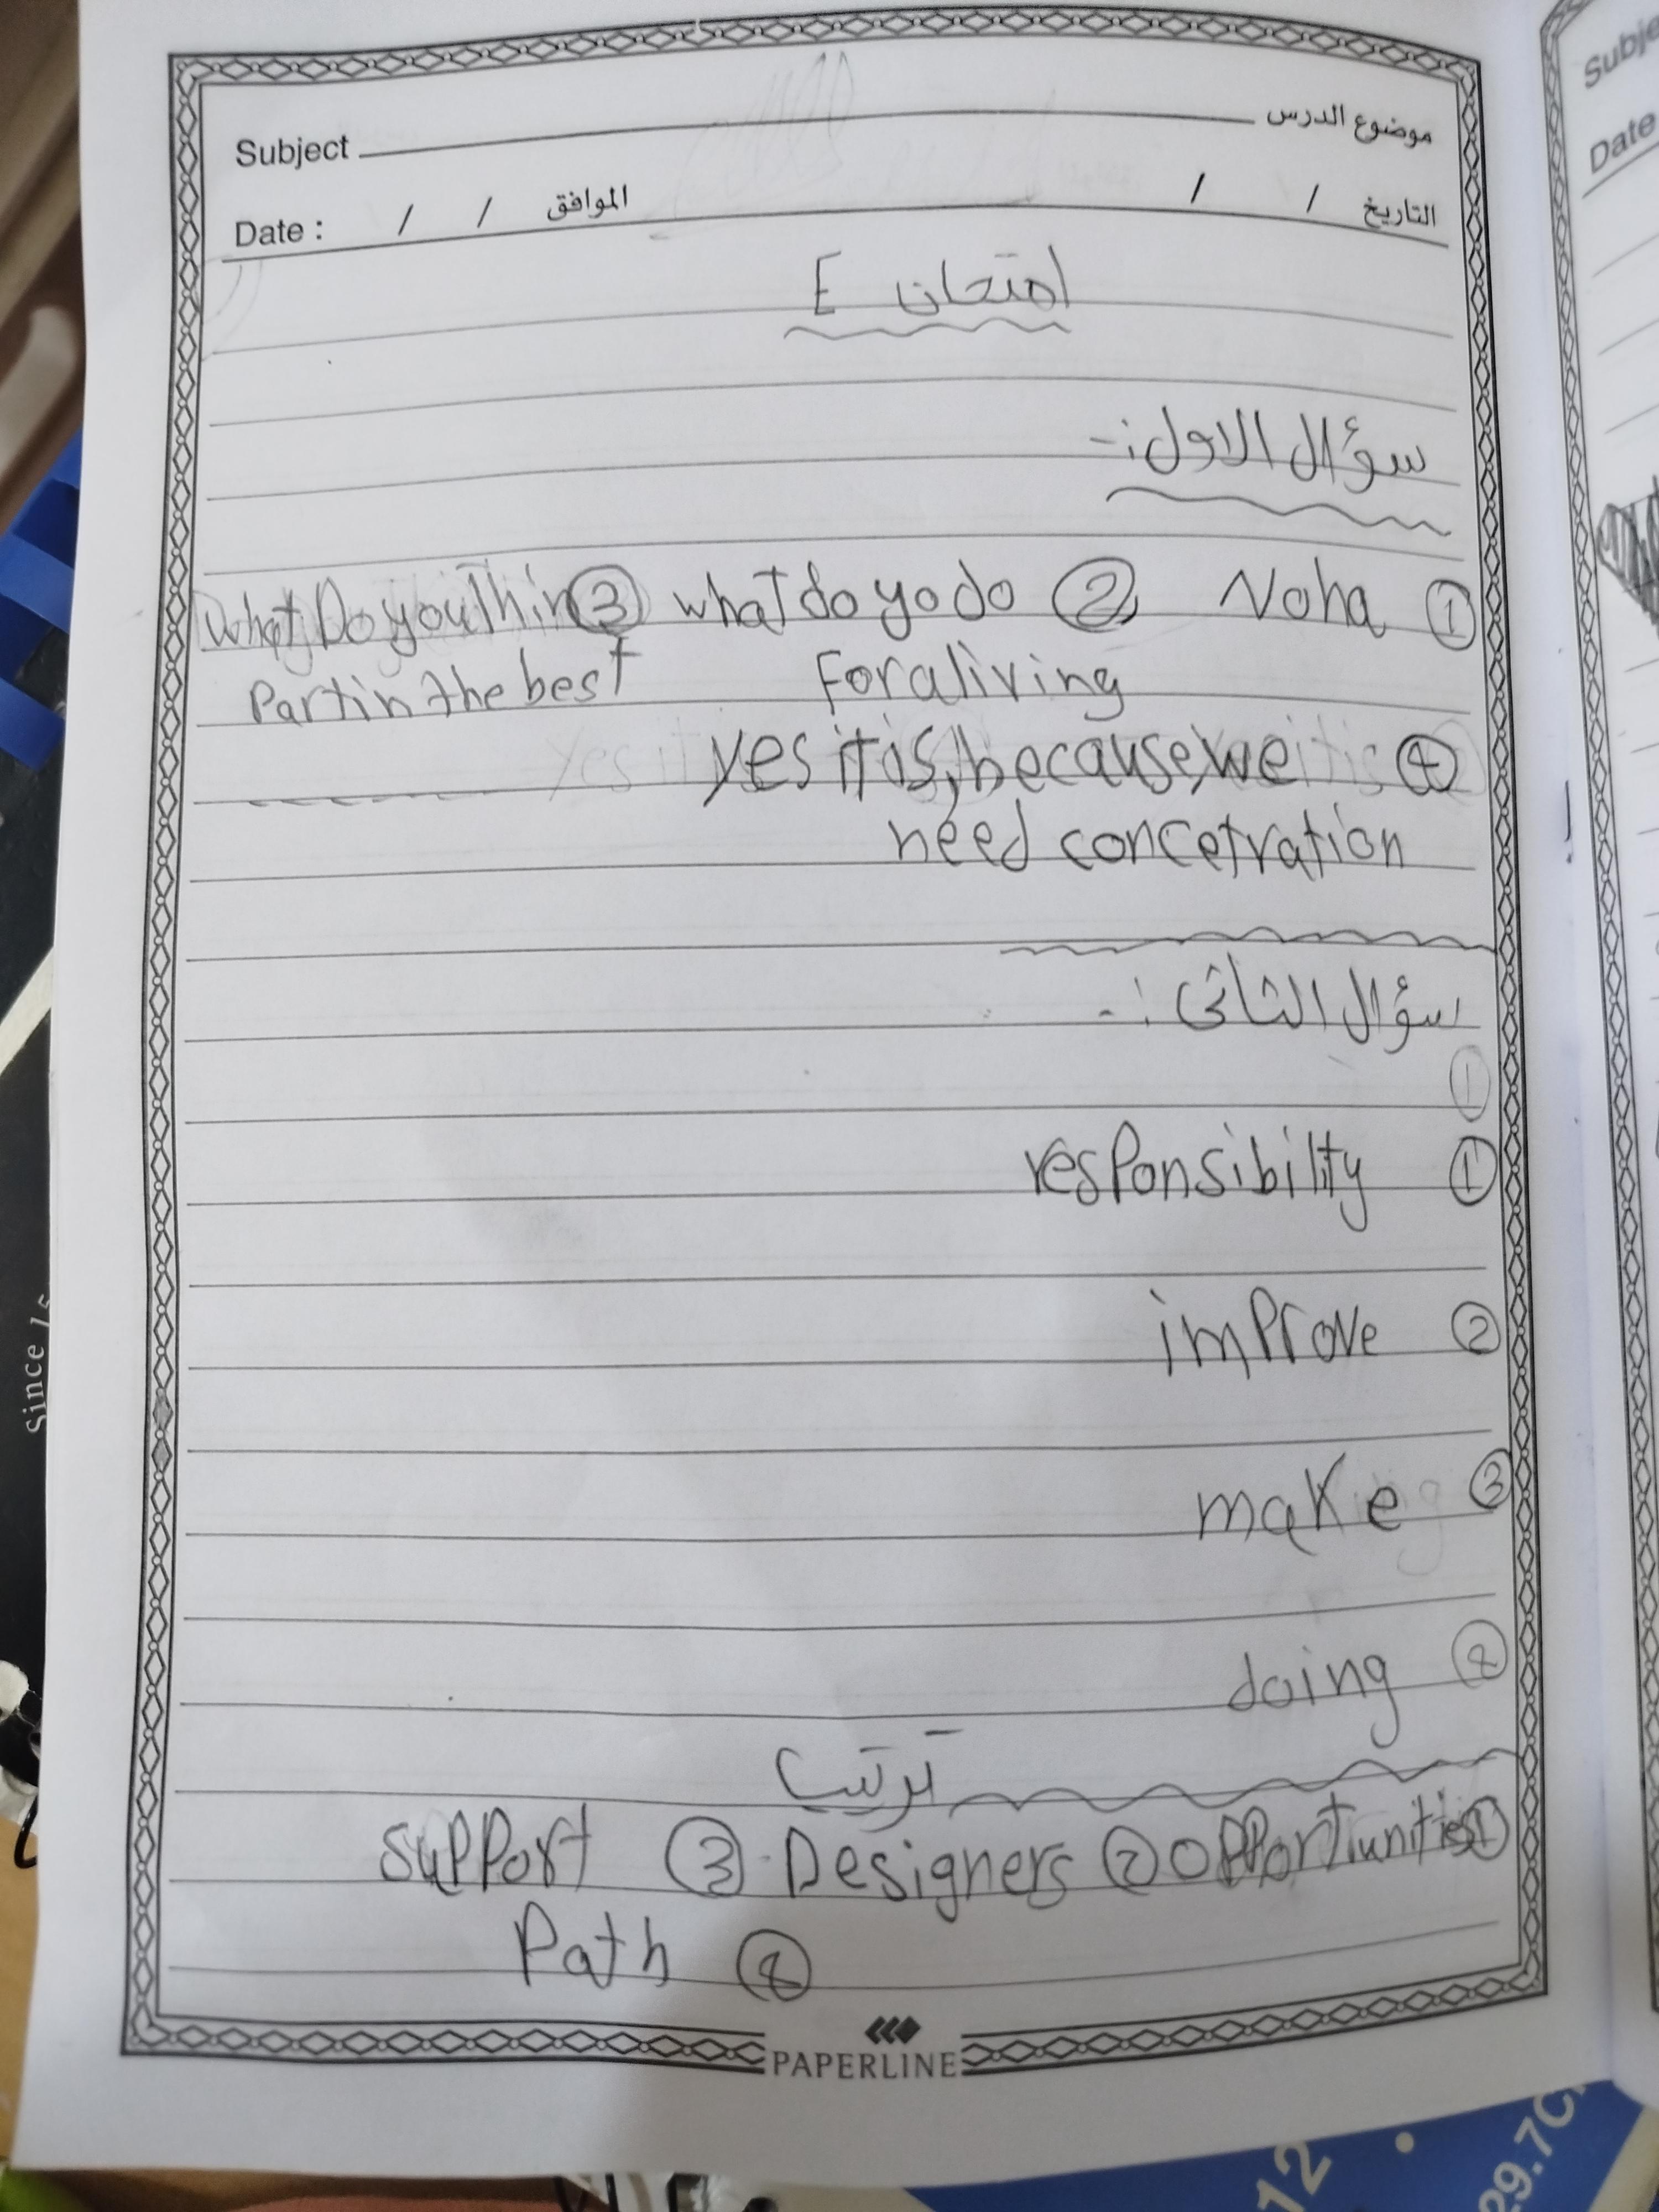 Subject موضوع الدرس
Date : / / الموافق / / التاريخ
امتحان E
سؤال الاول:-
① Noha ② what do yo do ③ What Do you Thin
For a living
Part in the best
④ yes it is, because, we
need concetration
سؤال الثاني :-
①
① responsibility
② improve
③ make
④ doing
ترتيب
① opportiunities ② Designers ③ support
④ Path
PAPERLINE
Subje
Date
Since
12
29.7C